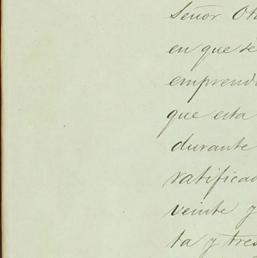 Señor Ot
en que se
emprend
que esta
durante
ratificad
veinte y
ta y tres